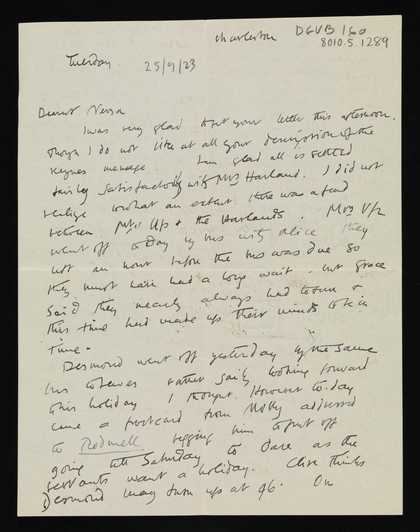 Charleston
DGVB 160
8010.5.1289
Tuesday 25/9/23
Dearest Nessa
I was very glad to get your letter this afternoon.
though I do not like at all your description of the
Keynes menage. I am glad all is settled
fairly satisfactorily with Mrs Harland. I did not
realise to what an extent there was a feud
between Mrs Up & the Harlands. Mrs Up
went off today by bus with Alice they
left an hour before the bus was due so
they must have had a long wait. but Grace
said they nearly always had to run &
this time had made up their minds to be in
time.
Desmond went off yesterday by the same
bus to Lewes rather sadly looking forward
to his holiday I thought. However to-day
came a postcard from Molly adressed
to Rodmell begging him to put off
going till Saturday to Oare as the
servants want a holiday. Clive thinks
Desmond may turn up at 46. On